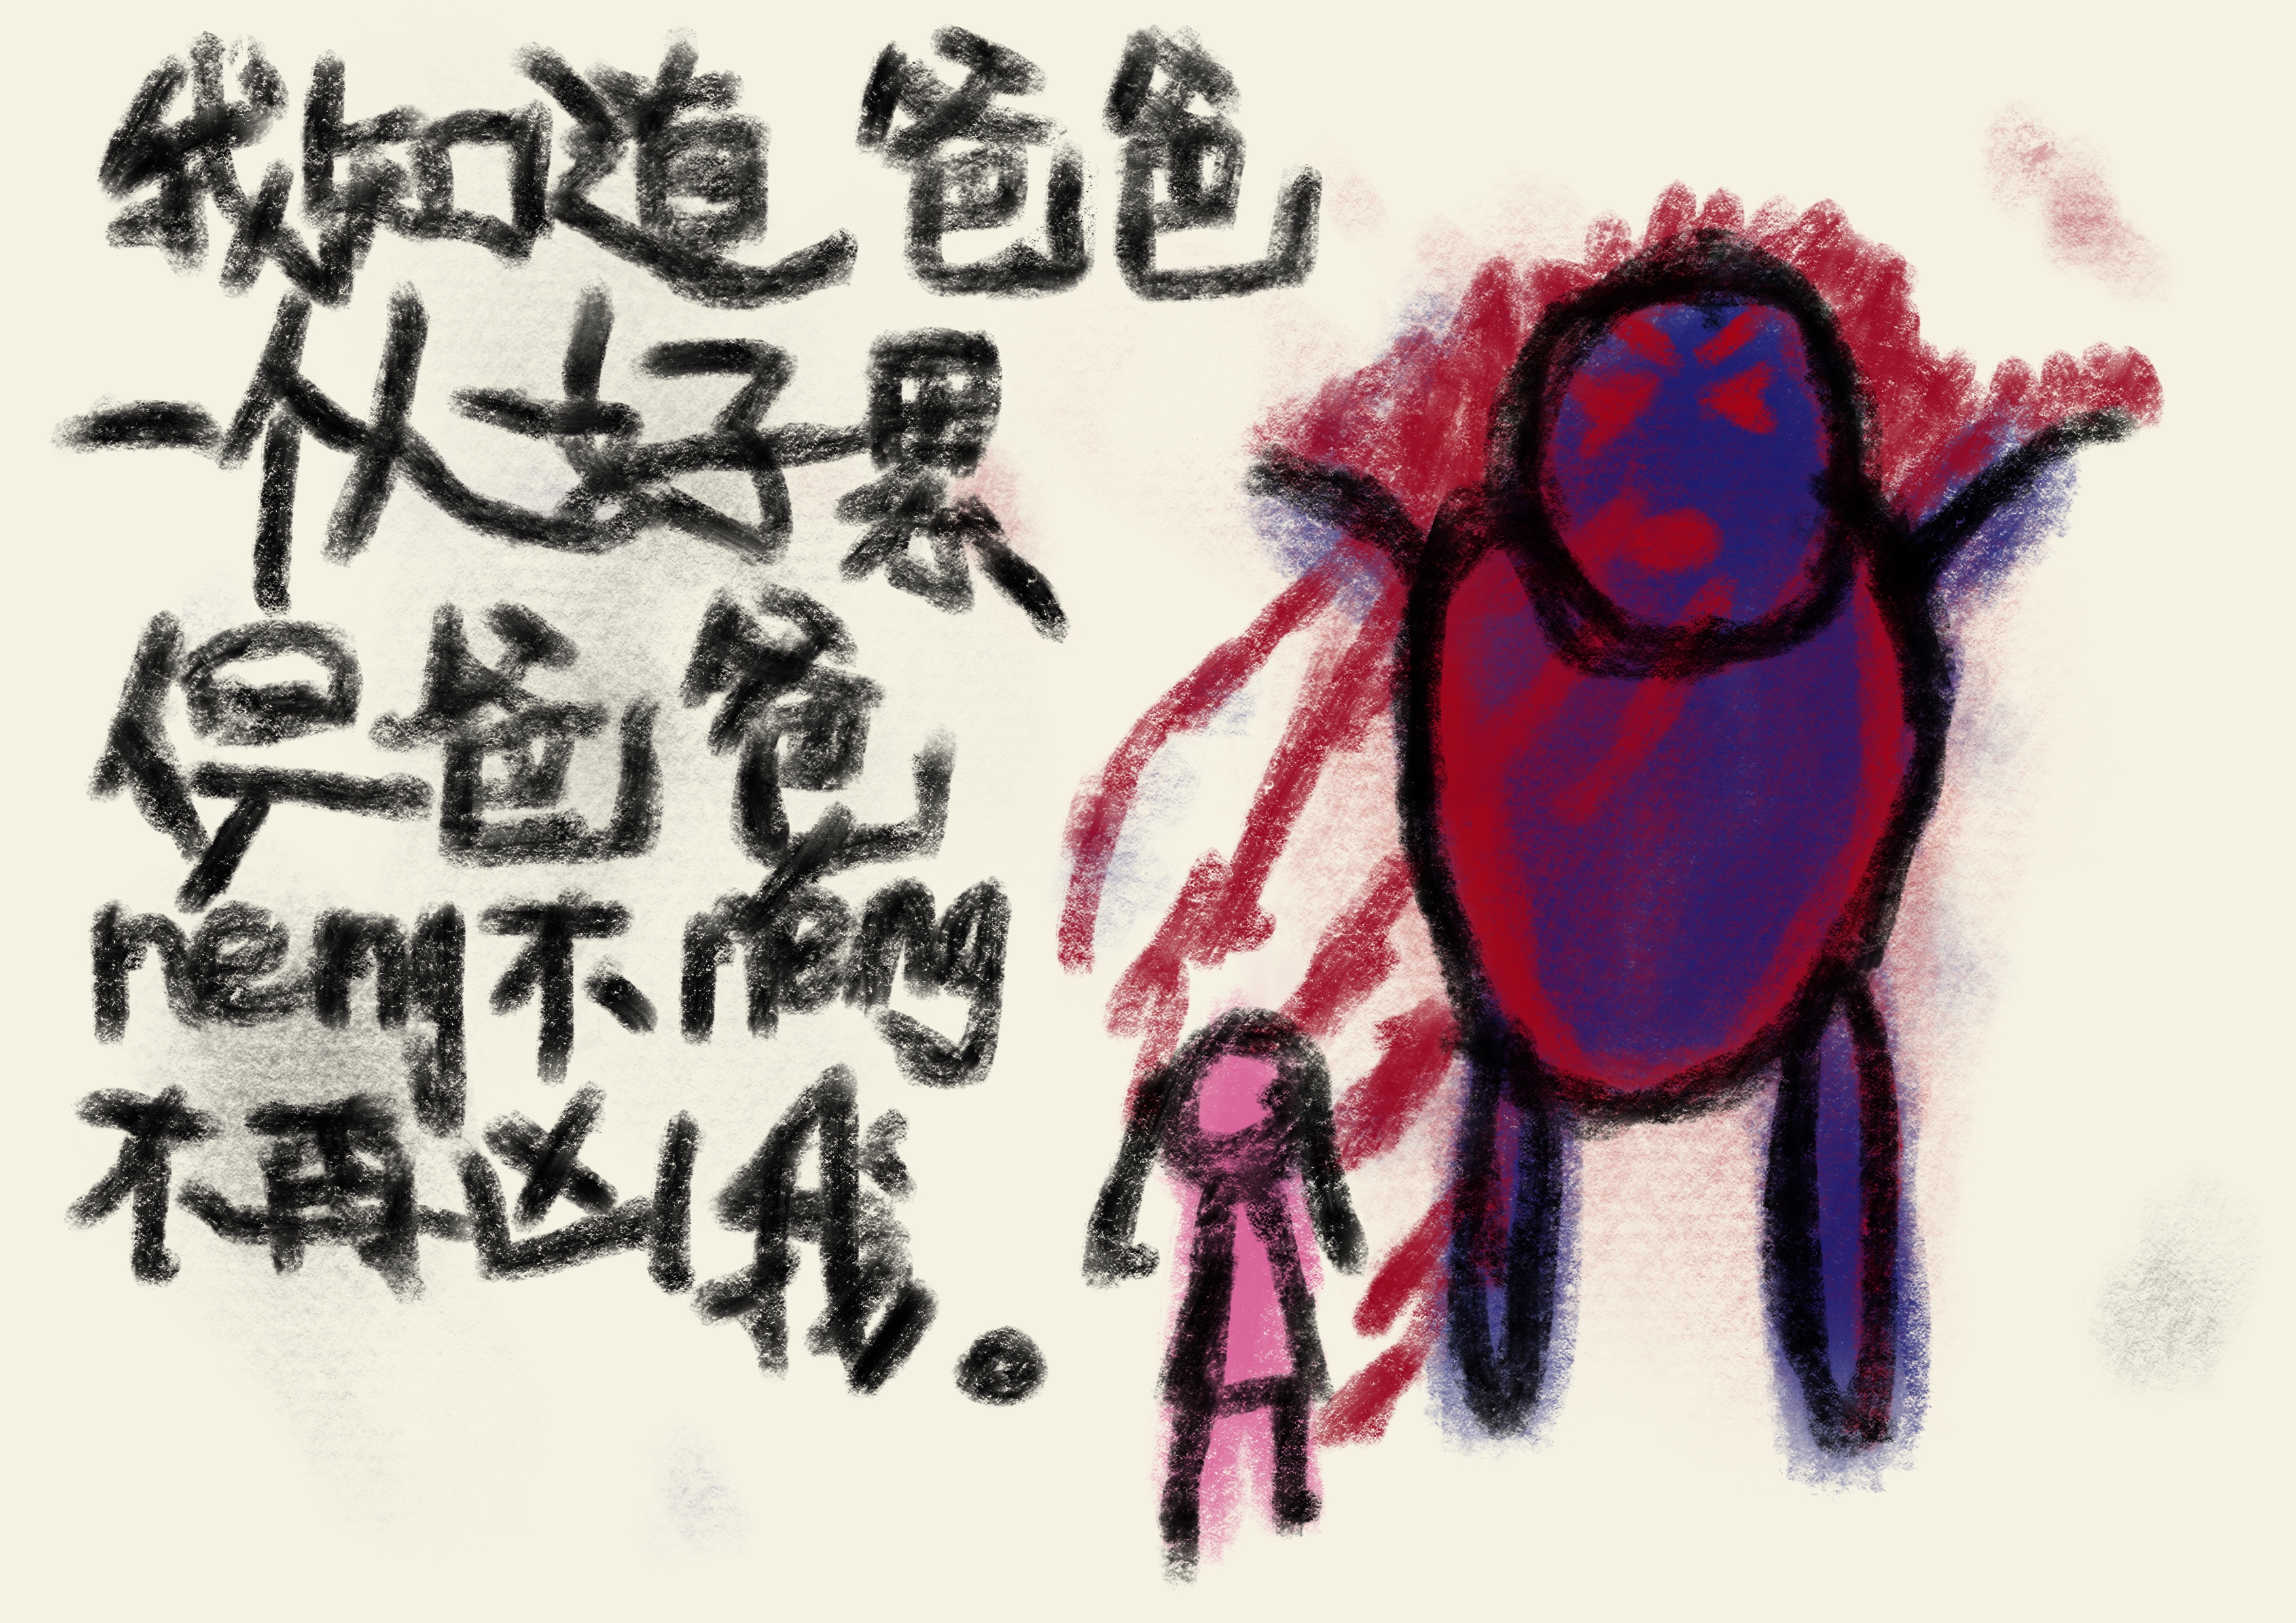 我知道爸爸
一个人好累
但爸爸
neng不néng
不再凶我。